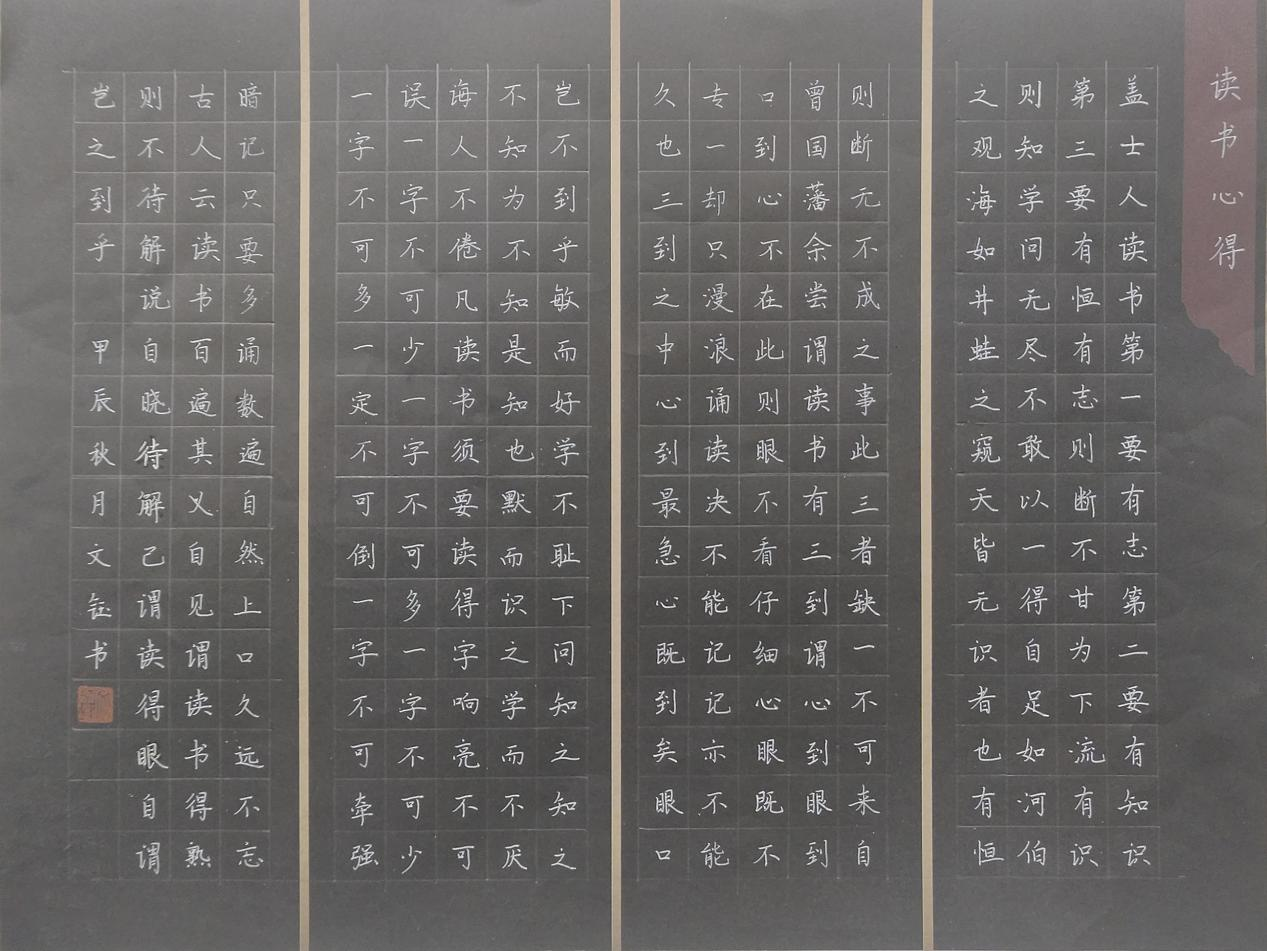 读书心得
盖士人读书第一要有志第二要有知识
第三要有恒有志则断不甘为下流有识
则知学问无尽不敢以一得自足如河伯
之观海如井蛙之窥天皆无识者也有恒
则断无不成之事此三者缺一不可来自
曾国藩余尝谓读书有三到谓心到眼到
口到心不在此则眼不看仔细心眼既不
专一却只漫浪诵读决不能记记亦不能
久也三到之中心到最急心既到矣眼口
岂不到乎敏而好学不耻下问知之知之
不知为不知是知也默而识之学而不厌
诲人不倦凡读书须要读得字响亮不可
误一字不可少一字不可多一字不可少
一字不可多一定不可倒一字不可牵强
暗记只要多诵数遍自然上口久远不忘
古人云读书百遍其义自见谓读书得熟
则不待解说自晓待解己谓读得眼自谓
岂之到乎 甲辰秋月文钰书